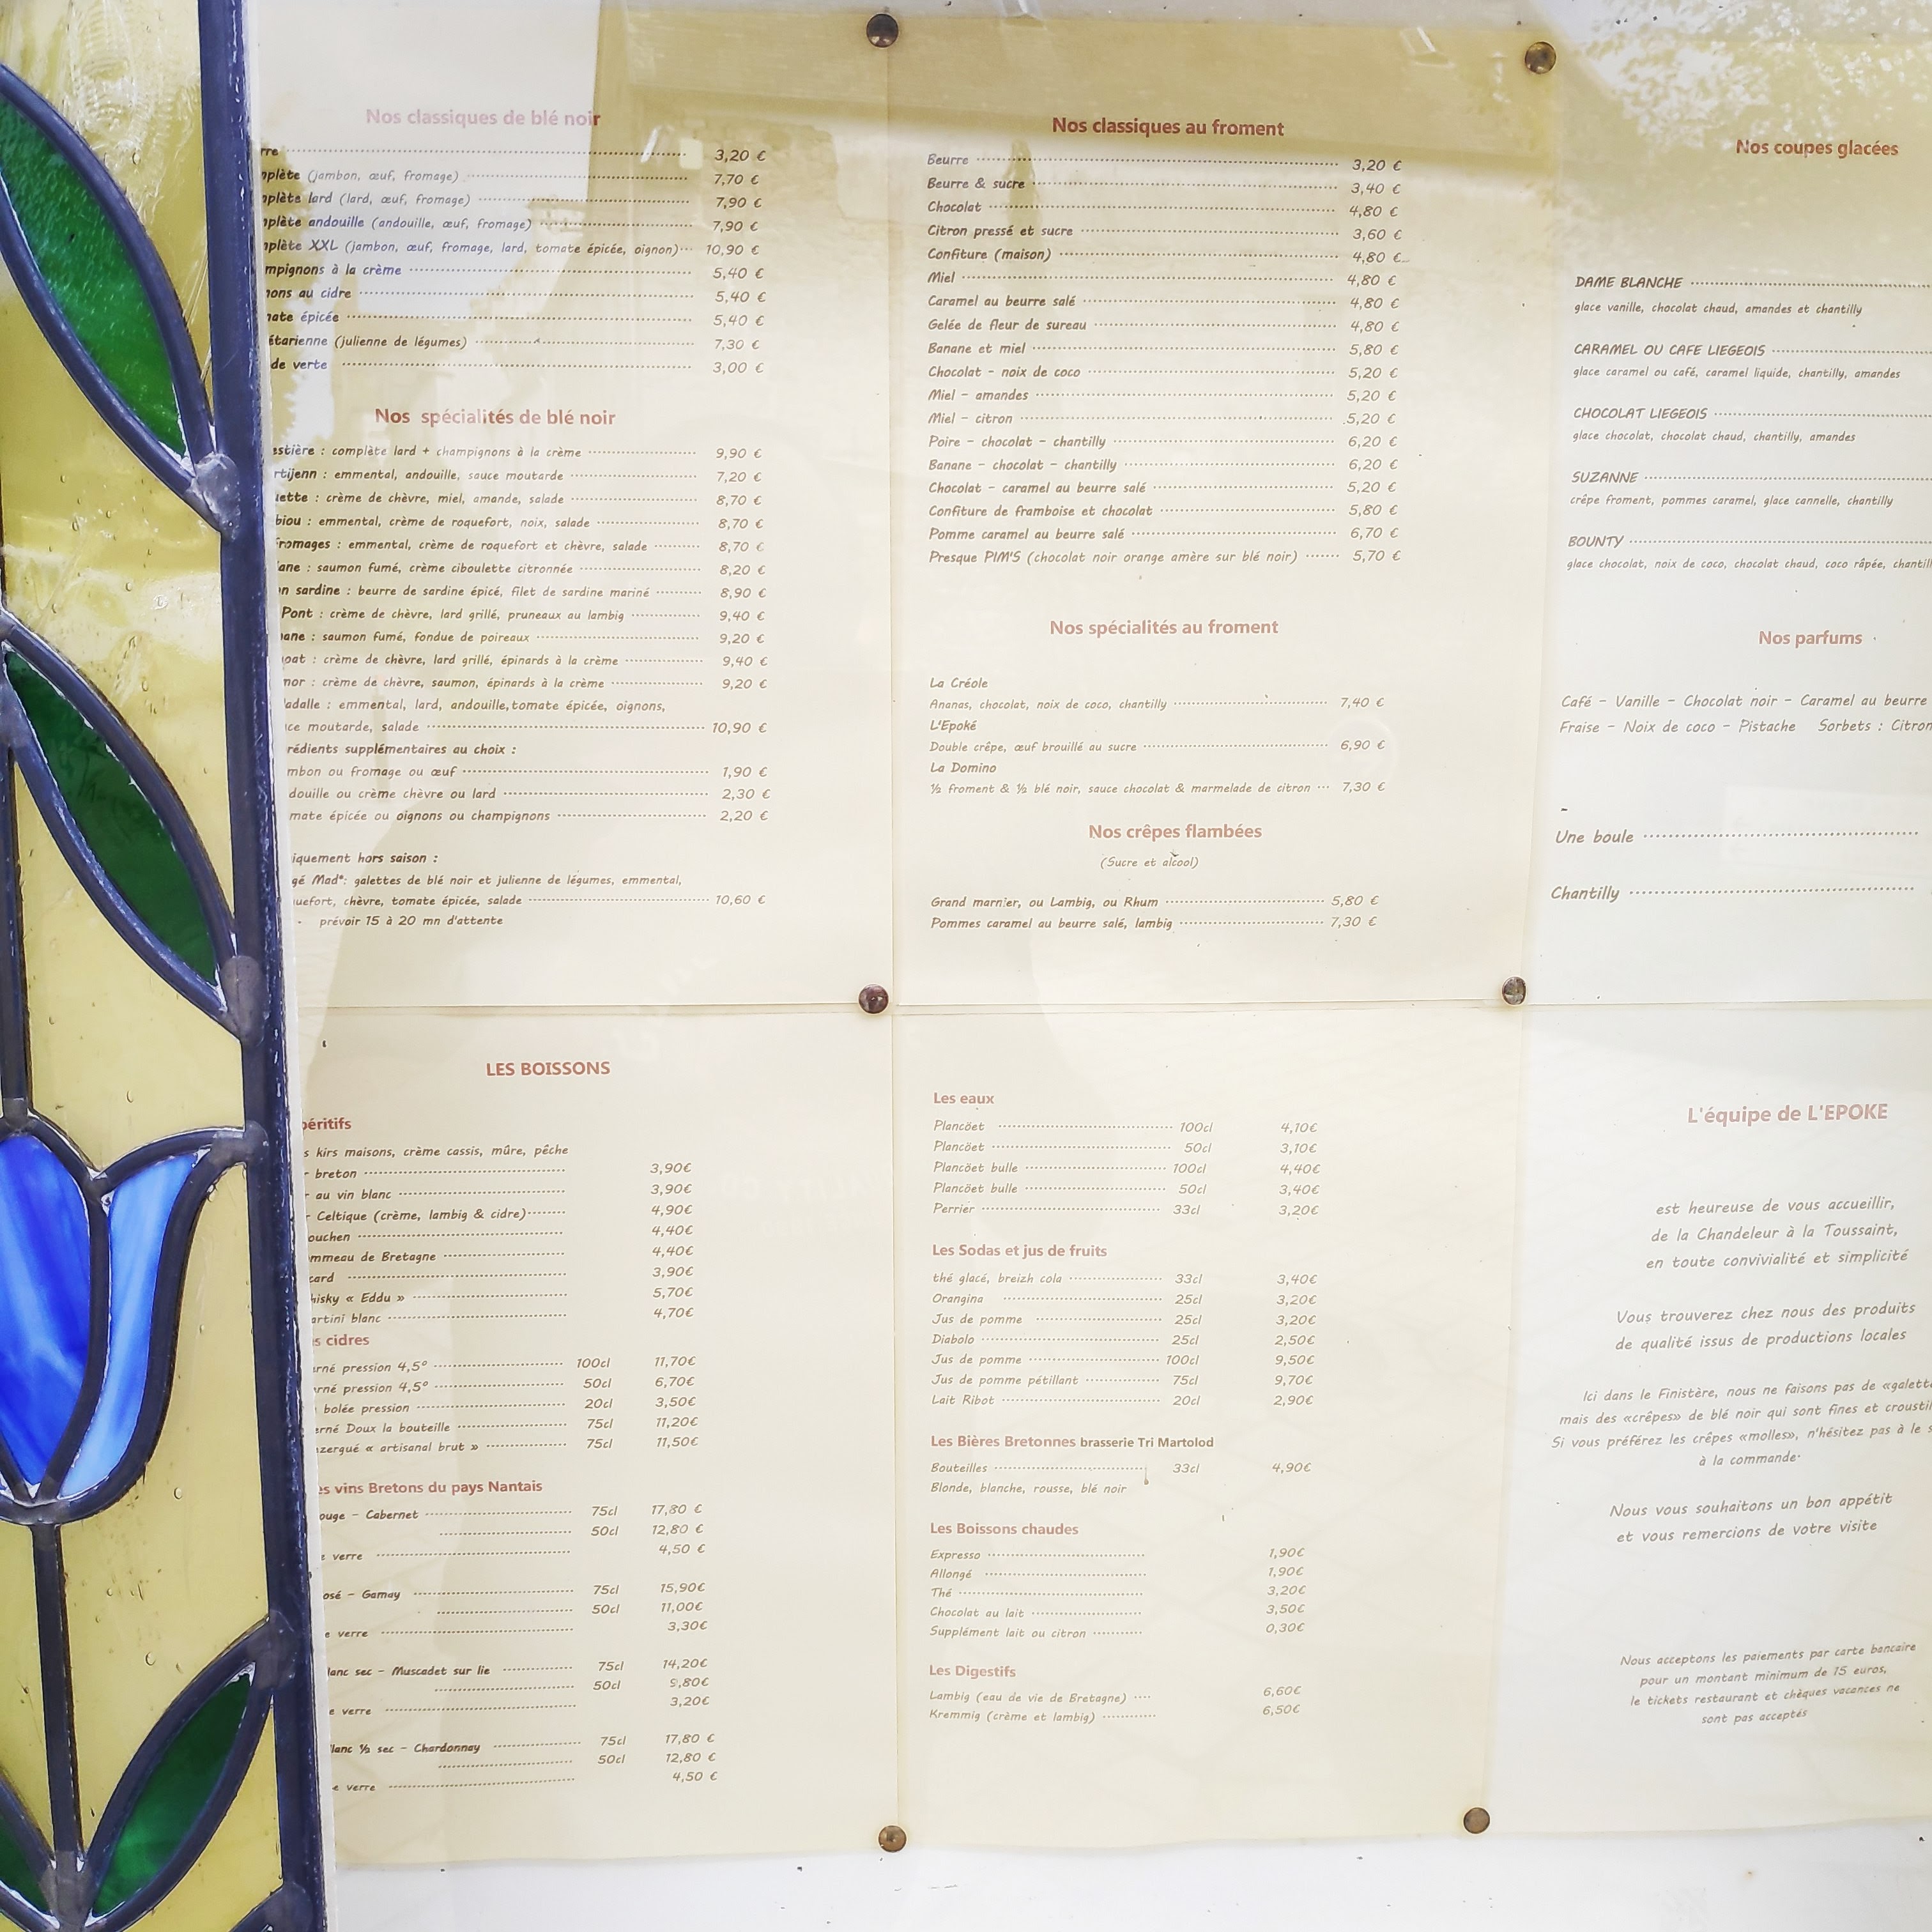 Nos classiques de blé noir
3,20 €
(jambon, œuf, fromage) 7,70 €
lard (lard, œuf, fromage) 7,90 €
andouille (andouille, œuf, fromage) 7,90 €
XXL (jambon, œuf, fromage, lard, tomate épicée, oignon) 10,90 €
à la crème 5,40 €
au cidre 5,40 €
épicée 5,40 €
(julienne de légumes) 7,30 €
verte 3,00 €
Nos spécialités de blé noir
: complète lard + champignons à la crème 9,90 €
: emmental, andouille, sauce moutarde 7,20 €
: crème de chèvre, miel, amande, salade 8,70 €
: emmental, crème de roquefort, noix, salade 8,70 €
fromages : emmental, crème de roquefort et chèvre, salade 8,70 €
: saumon fumé, crème ciboulette citronnée 8,20 €
sardine : beurre de sardine épicé, filet de sardine mariné 8,90 €
Pont : crème de chèvre, lard grillé, pruneaux au lambig 9,40 €
: saumon fumé, fondue de poireaux 9,20 €
: crème de chèvre, lard grillé, épinards à la crème 9,40 €
: crème de chèvre, saumon, épinards à la crème 9,20 €
: emmental, lard, andouille,tomate épicée, oignons,
moutarde, salade 10,90 €
supplémentaires au choix :
ou fromage ou œuf 1,90 €
ou crème chèvre ou lard 2,30 €
épicée ou oignons ou champignons 2,20 €
hors saison :
Mad*: galettes de blé noir et julienne de légumes, emmental,
chèvre, tomate épicée, salade 10,60 €
- prévoir 15 à 20 mn d'attente
Nos classiques au froment
Beurre 3,20 €
Beurre & sucre 3,40 €
Chocolat 4,80 €
Citron pressé et sucre 3,60 €
Confiture (maison) 4,80 €
Miel 4,80 €
Caramel au beurre salé 4,80 €
Gelée de fleur de sureau 4,80 €
Banane et miel 5,80 €
Chocolat - noix de coco 5,20 €
Miel - amandes 5,20 €
Miel - citron 5,20 €
Poire - chocolat - chantilly 6,20 €
Banane - chocolat - chantilly 6,20 €
Chocolat - caramel au beurre salé 5,20 €
Confiture de framboise et chocolat 5,80 €
Pomme caramel au beurre salé 6,70 €
Presque PIM'S (chocolat noir orange amère sur blé noir) 5,70 €
Nos spécialités au froment
La Créole
Ananas, chocolat, noix de coco, chantilly 7,40 €
L'Epoké
Double crêpe, œuf brouillé au sucre 6,90 €
La Domino
½ froment & ½ blé noir, sauce chocolat & marmelade de citron 7,30 €
Nos crêpes flambées
(Sucre et alcool)
Grand marnier, ou Lambig, ou Rhum 5,80 €
Pommes caramel au beurre salé, lambig 7,30 €
Nos coupes glacées
DAME BLANCHE
glace vanille, chocolat chaud, amandes et chantilly
CARAMEL OU CAFE LIEGEOIS
glace caramel ou café, caramel liquide, chantilly, amandes
CHOCOLAT LIEGEOIS
glace chocolat, chocolat chaud, chantilly, amandes
SUZANNE
crêpe froment, pommes caramel, glace cannelle, chantilly
BOUNTY
glace chocolat, noix de coco, chocolat chaud, coco râpée,
Nos parfums
Café - Vanille - Chocolat noir - Caramel au beurre
Fraise - Noix de coco - Pistache Sorbets : Citron
-
Une boule
Chantilly
LES BOISSONS
kirs maisons, crème cassis, mûre, pêche
breton 3,90€
au vin blanc 3,90€
Celtique (crème, lambig & cidre) 4,90€
4,40€
de Bretagne 4,40€
3,90€
« Eddu » 5,70€
blanc 4,70€
cidres
pression 4,5° 100cl 11,70€
pression 4,5° 50cl 6,70€
bolée pression 20cl 3,50€
Doux la bouteille 75cl 11,20€
« artisanal brut » 75cl 11,50€
vins Bretons du pays Nantais
- Cabernet 75cl 17,80 €
50cl 12,80 €
verre 4,50 €
- Gamay 75cl 15,90€
50cl 11,00€
verre 3,30€
sec - Muscadet sur lie 75cl 14,20€
50cl 9,80€
verre 3,20€
½ sec - Chardonnay 75cl 17,80 €
50cl 12,80 €
verre 4,50 €
Les eaux
Plancöet 100cl 4,10€
Plancöet 50cl 3,10€
Plancöet bulle 100cl 4,40€
Plancöet bulle 50cl 3,40€
Perrier 33cl 3,20€
Les Sodas et jus de fruits
thé glacé, breizh cola 33cl 3,40€
Orangina 25cl 3,20€
Jus de pomme 25cl 3,20€
Diabolo 25cl 2,50€
Jus de pomme 100cl 9,50€
Jus de pomme pétillant 75cl 9,70€
Lait Ribot 20cl 2,90€
Les Bières Bretonnes brasserie Tri Martolod
Bouteilles 33cl 4,90€
Blonde, blanche, rousse, blé noir
Les Boissons chaudes
Expresso 1,90€
Allongé 1,90€
Thé 3,20€
Chocolat au lait 3,50€
Supplément lait ou citron 0,30€
Les Digestifs
Lambig (eau de vie de Bretagne) 6,60€
Kremmig (crème et lambig) 6,50€
L'équipe de L'EPOKE
est heureuse de vous accueillir,
de la Chandeleur à la Toussaint,
en toute convivialité et simplicité
Vous trouverez chez nous des produits
de qualité issus de productions locales
Ici dans le Finistère, nous ne faisons pas de
mais des «crêpes» de blé noir qui sont fines et
Si vous préférez les crêpes «molles», n'hésitez pas à le
à la commande.
Nous vous souhaitons un bon appétit
et vous remercions de votre visite
Nous acceptons les paiements par carte bancaire
pour un montant minimum de 15 euros,
le tickets restaurant et chèques vacances ne
sont pas acceptés